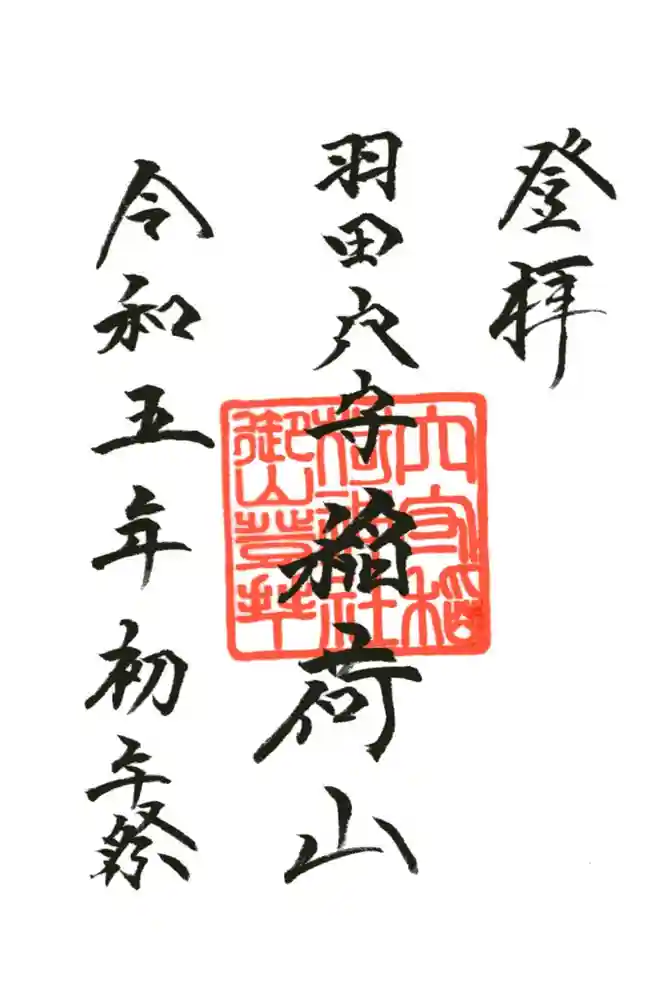 登拝
羽田穴守稲荷山
令和五年初午祭
穴守稲
荷神社
御山登拝